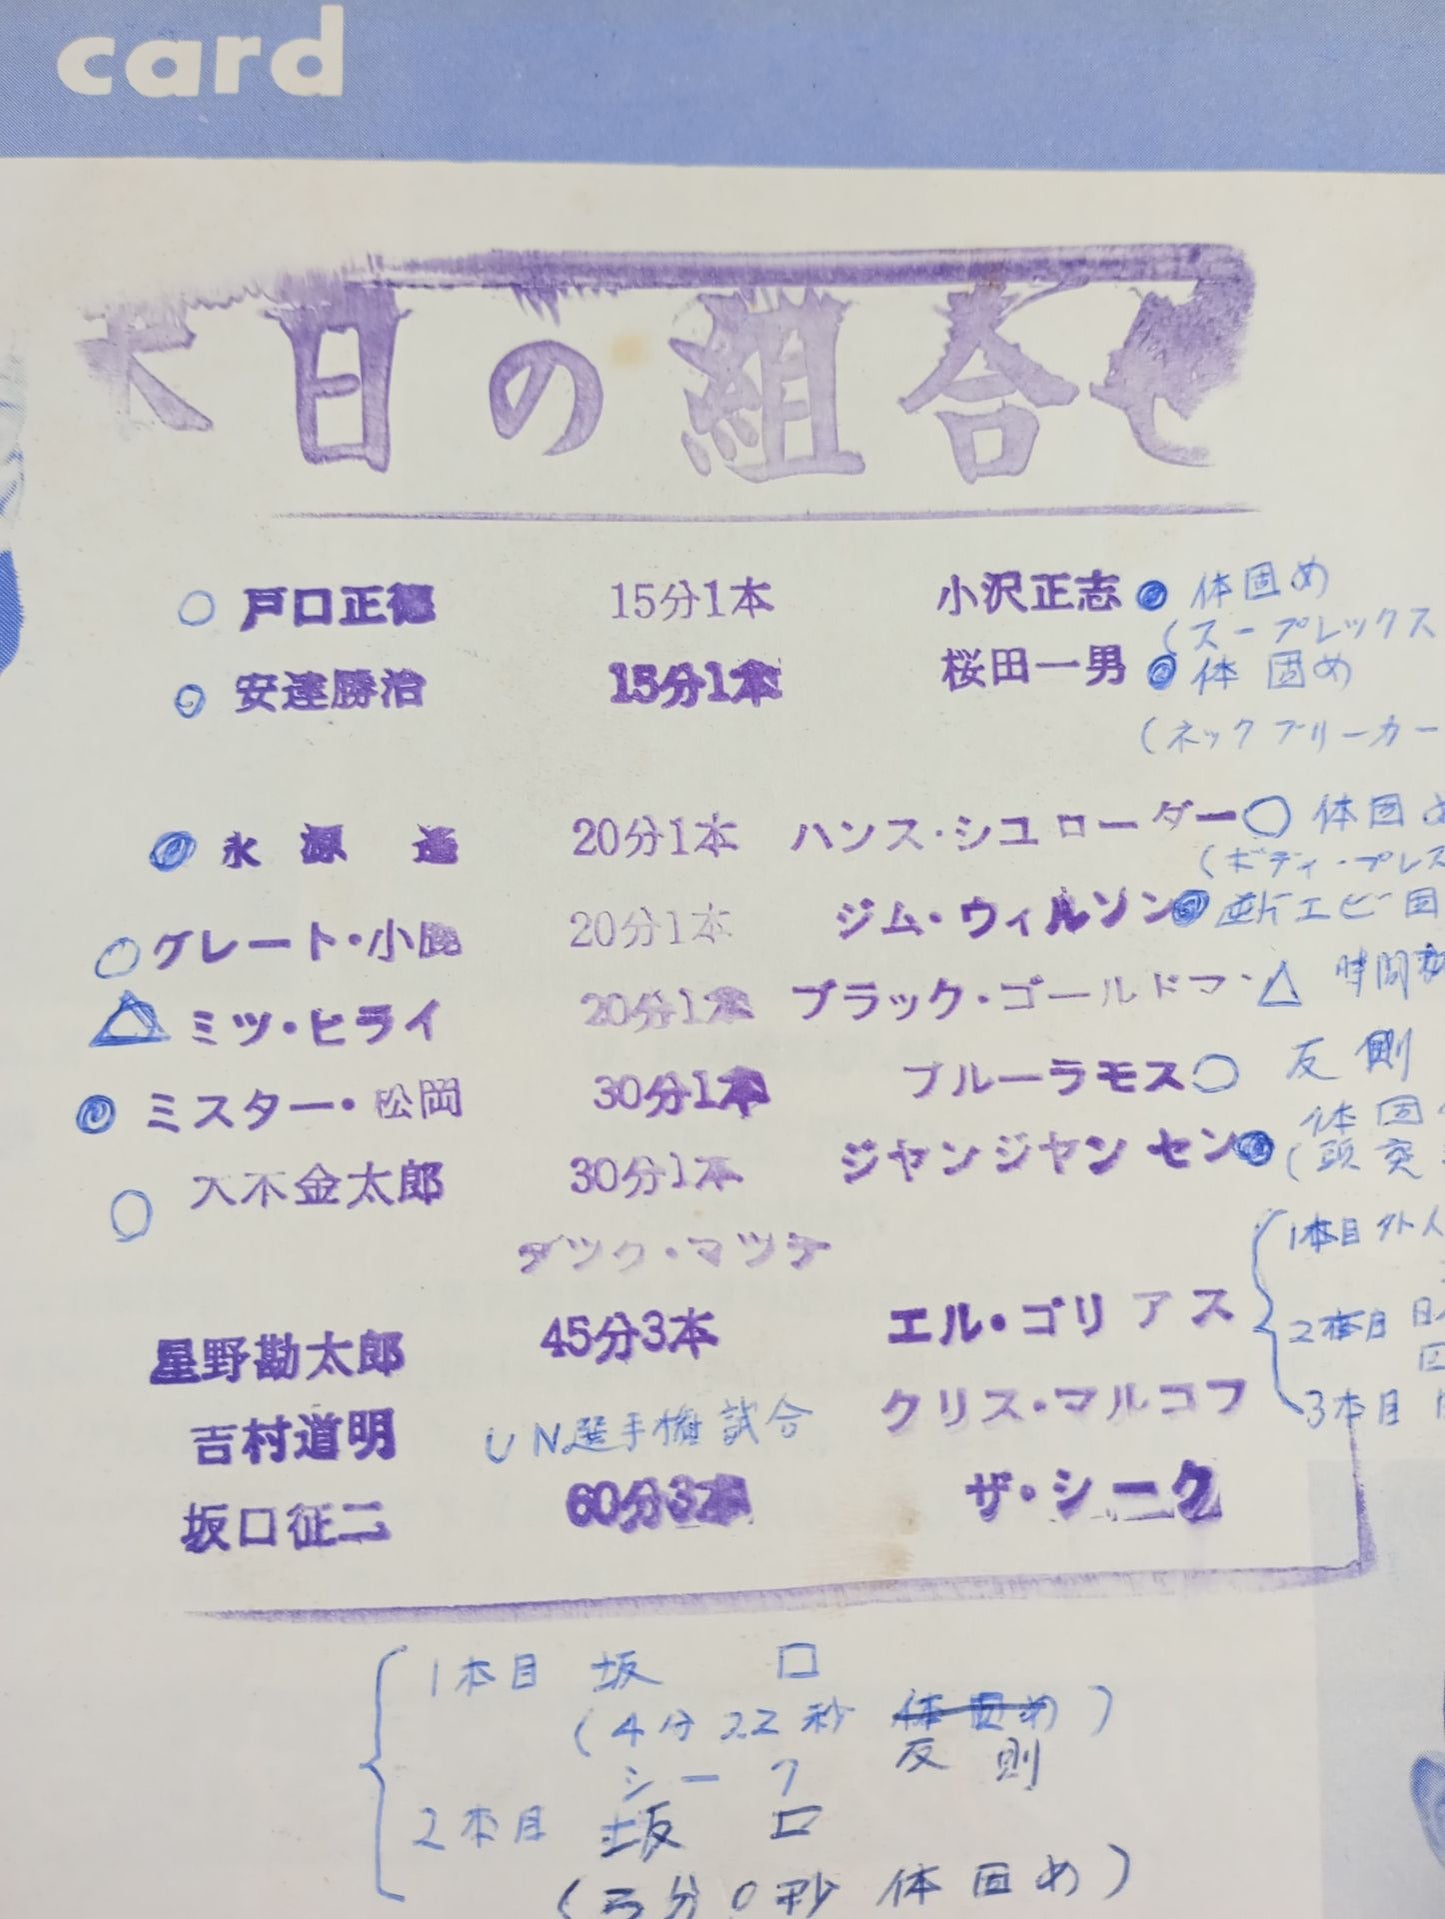 card
本日の組合せ
○ 戸口正徳 15分1本 小沢正志 ● 体固め
(スープレックス
○ 安達勝治 15分1本 桜田一男 ● 体固め
(ネックブリーカー
● 永源遥 20分1本 ハンス・シュローダー ○ 体固め
(ボディ・プレス
○ グレート・小鹿 20分1本 ジム・ウィルソン ● 逆片エビ固
△ ミツ・ヒライ 20分1本 ブラック・ゴールドマン △ 時間
● ミスター・松岡 30分1本 ブルーラモス ○ 反則
○ 大木金太郎 30分1本 ジヤンジヤンセン ● 体固
(頭突
タツグ・マツチ
星野勘太郎 45分3本 エル・ゴリアス
吉村道明 クリス・マルコフ
1本目 外人
2本目
3本目
UN選手権試合
坂口征二 60分3本 ザ・シーク
1本目 坂口
(4分22秒 体固め)
反則
シーク
2本目 坂口
(5分0秒 体固め)